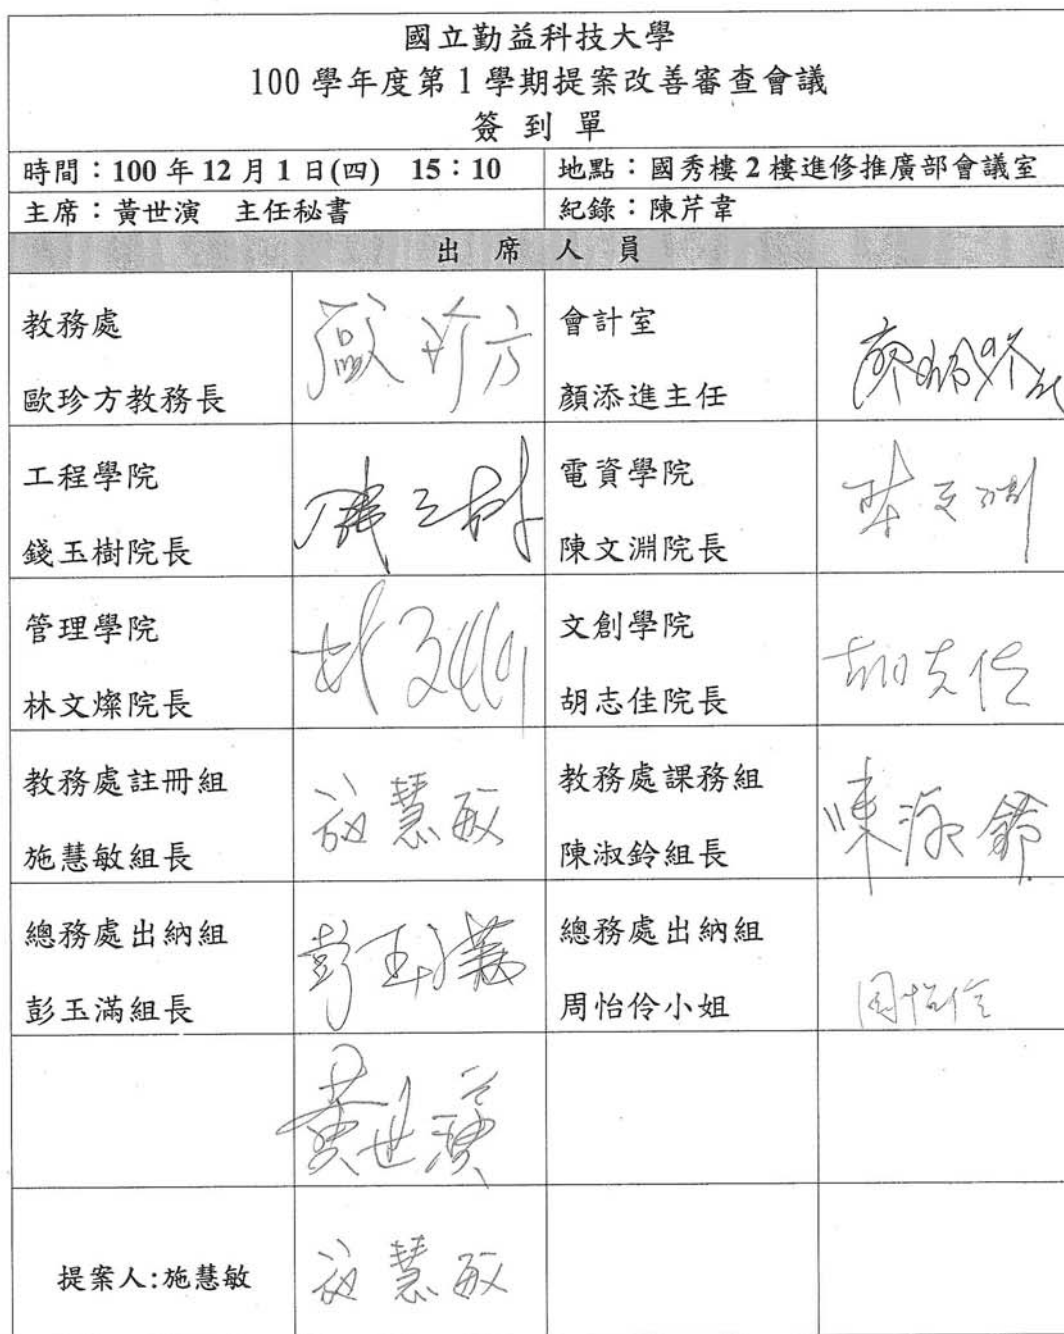 國立勤益科技大學
100 學年度第 1 學期提案改善審查會議
簽到單
時間：100 年 12 月 1 日(四) 15：10 地點：國秀樓 2 樓進修推廣部會議室
主席：黃世演 主任秘書 紀錄：陳芹韋
出席人員
教務處
歐珍方教務長
歐珍方
會計室
顏添進主任
工程學院
錢玉樹院長
電資學院
陳文淵院長
陳文淵
管理學院
林文燦院長
林文燦
文創學院
胡志佳院長
胡志佳
教務處註冊組
施慧敏組長
施慧敏
教務處課務組
陳淑鈴組長
陳淑鈴
總務處出納組
彭玉滿組長
彭玉滿
總務處出納組
周怡伶小姐
周怡伶
黃世演
提案人:施慧敏
施慧敏